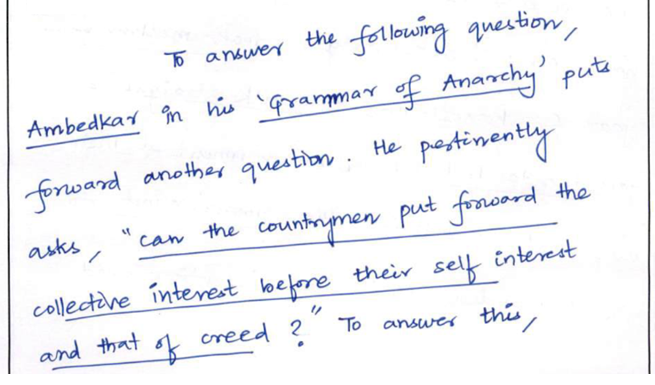 To answer the following question,
Ambedkar in his 'Grammar of Anarchy' puts
forward another question. He pertinently
asks, "can the countrymen put forward the
collective interest before their self interest
and that of creed?" To answer this,